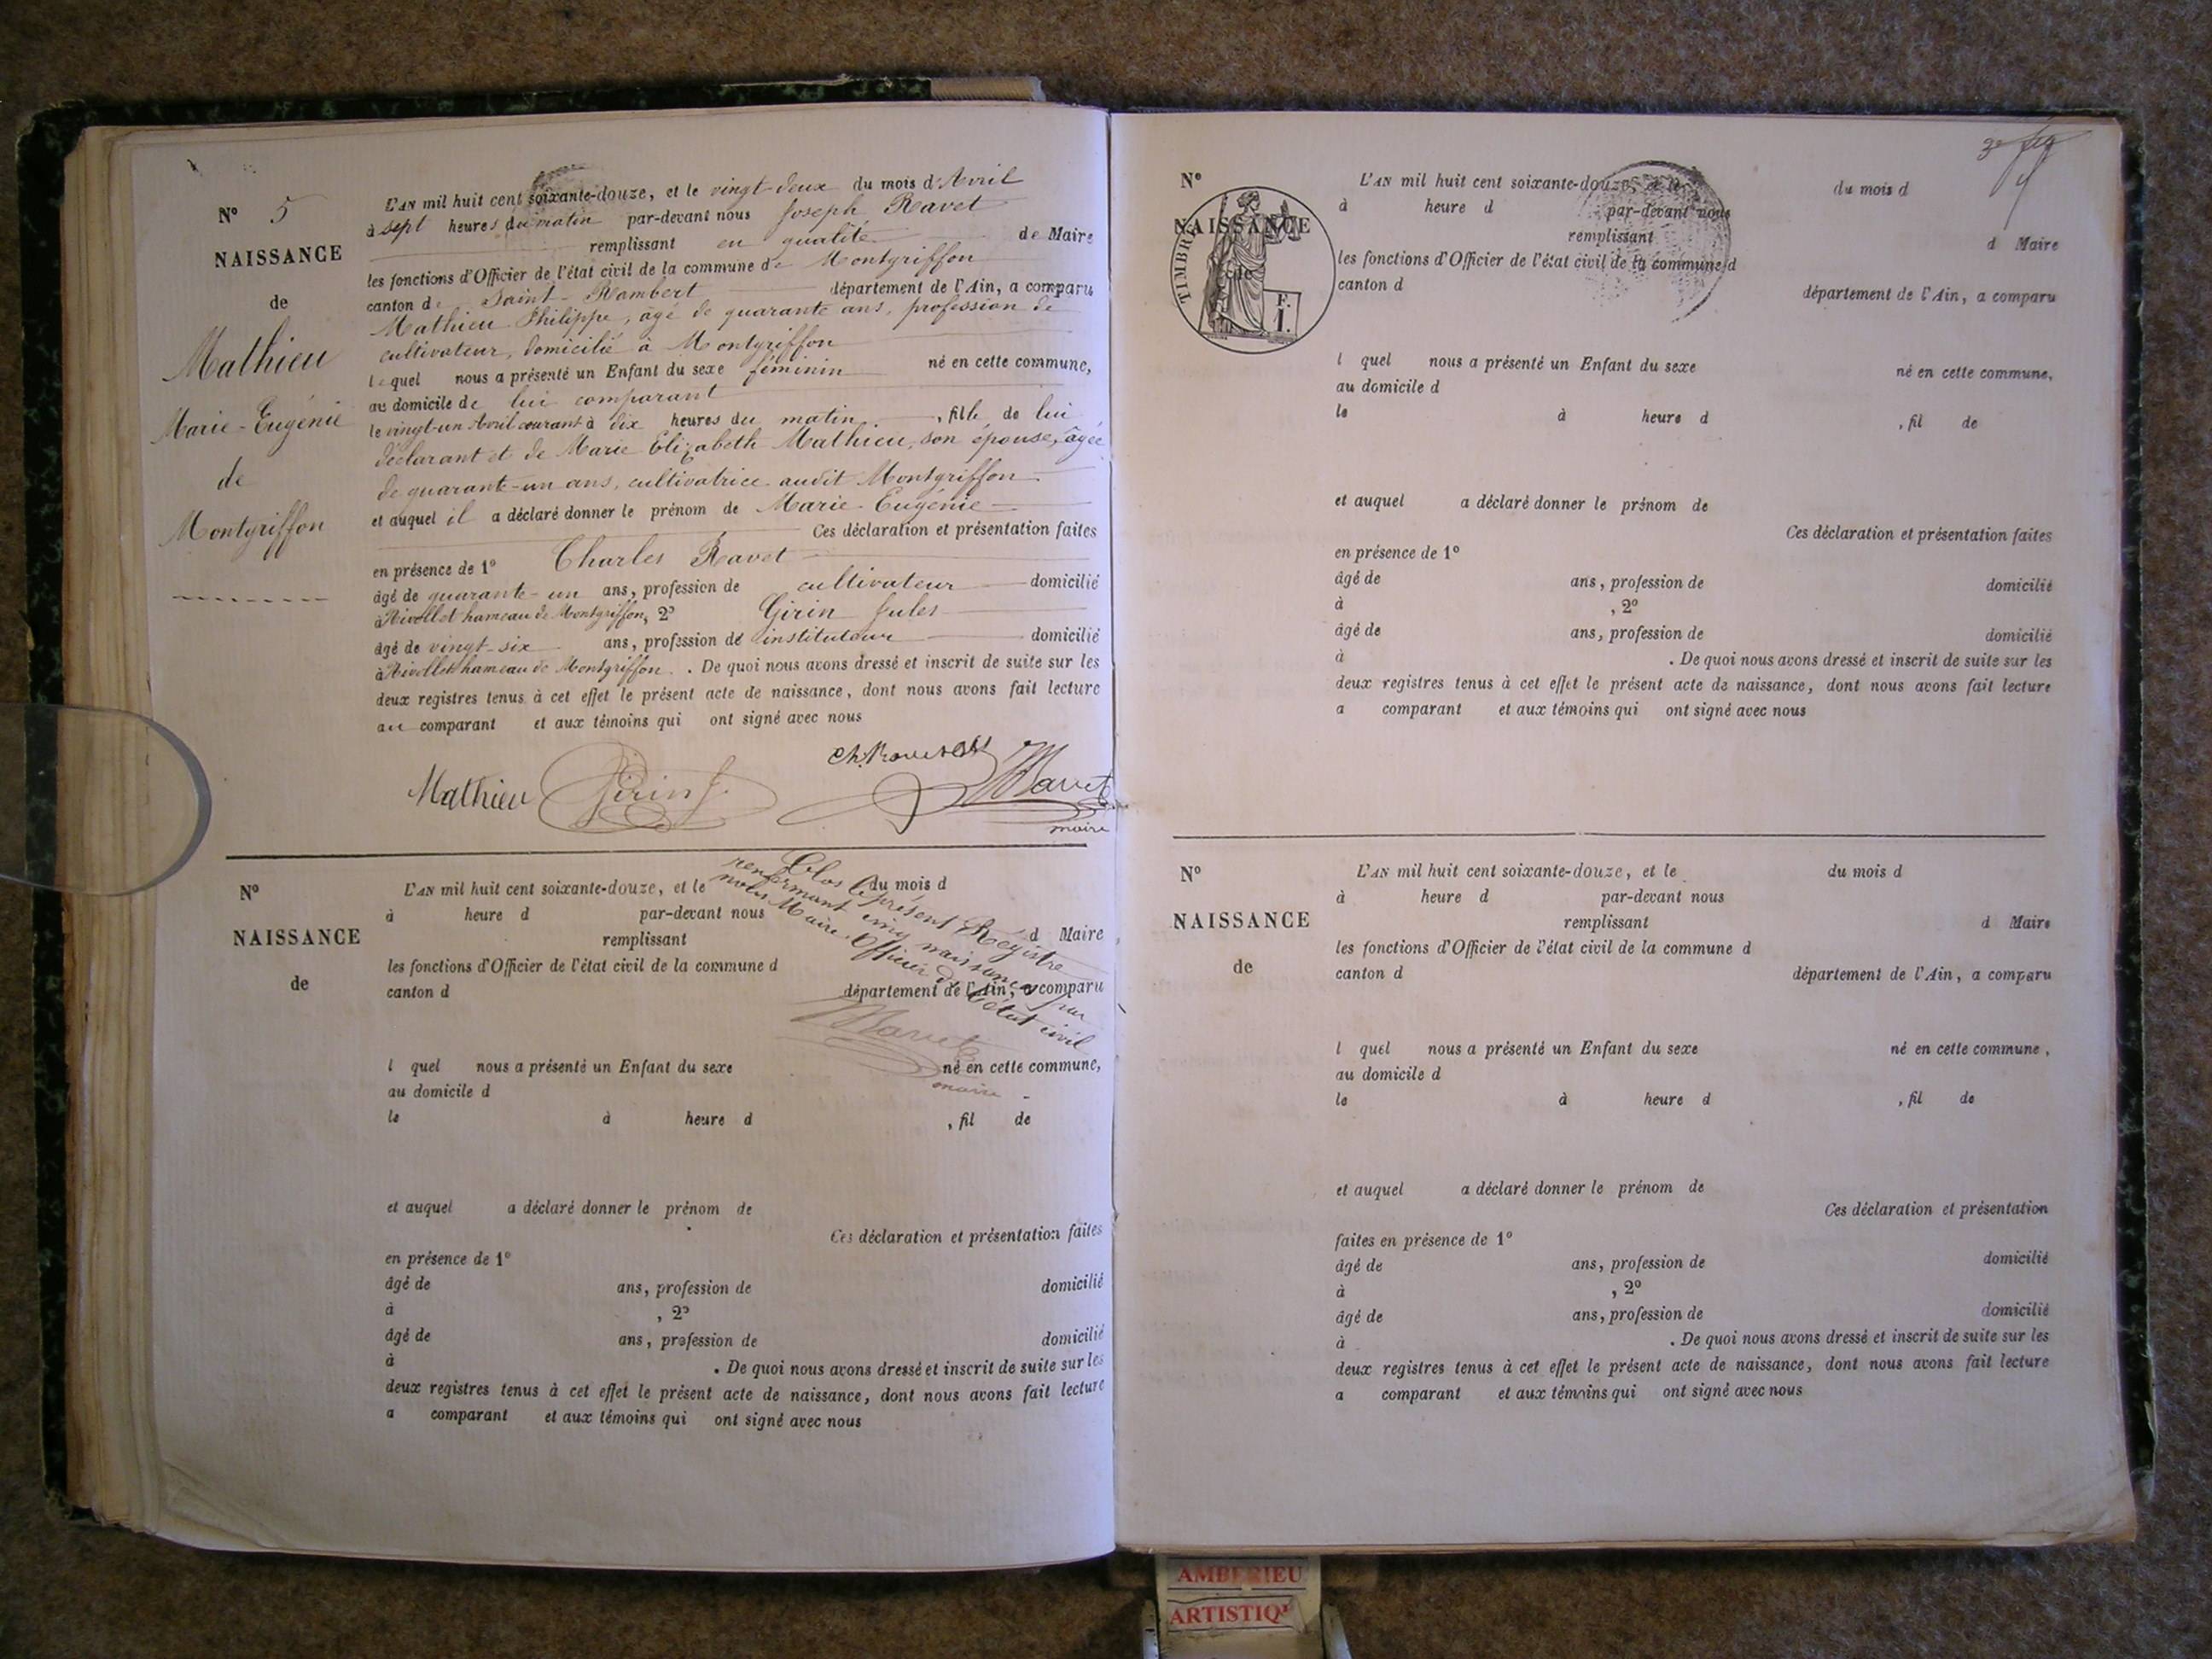 Nº 5
NAISSANCE
de
Mathieu
Marie-Eugénie
de
Montgriffon
L'AN mil huit cent soixante-douze, et le vingt-deux du mois d'Avril
à sept heures du matin par-devant nous Joseph Ravet
remplissant en qualité de Maire
les fonctions d'Officier de l'état civil de la commune de Montgriffon
canton de Saint-Rambert département de l'Ain, a comparu
Mathieu Philippe, âgé de quarante ans, profession de
cultivateur, domicilié à Montgriffon
lequel nous a présenté un Enfant du sexe féminin né en cette commune,
au domicile de lui comparant
le vingt-un Avril courant à dix heures du matin, fille de lui
déclarant et de Marie Elizabeth Mathieu, son épouse, âgée
de quarante-un ans, cultivatrice audit Montgriffon
et auquel il a déclaré donner le prénom de Marie Eugénie
Ces déclaration et présentation faites
en présence de 1º Charles Ravet
âgé de quarante-un ans, profession de cultivateur domicilié
à Rivollet hameau de Montgriffon, 2º Girin Jules
âgé de vingt-six ans, profession de instituteur domicilié
à Rivollet hameau de Montgriffon. De quoi nous avons dressé et inscrit de suite sur les
deux registres tenus à cet effet le présent acte de naissance, dont nous avons fait lecture
au comparant et aux témoins qui ont signé avec nous
Mathieu Girin J. Ch. Ravet Ravet
maire
Nº
NAISSANCE
de
L'AN mil huit cent soixante-douze, et le du mois d
à heure d par-devant nous
remplissant d Maire
les fonctions d'Officier de l'état civil de la commune d
canton d département de l'Ain, a comparu
Clos le présent Régistre
renfermant cinq naissances par
nous Maire Officier de l'état civil
Ravet
maire
l quel nous a présenté un Enfant du sexe né en cette commune,
au domicile d
le à heure d , fil de
et auquel a déclaré donner le prénom de
Ces déclaration et présentation faites
en présence de 1º
âgé de ans, profession de domicilié
à , 2º
âgé de ans, profession de domicilié
à . De quoi nous avons dressé et inscrit de suite sur les
deux registres tenus à cet effet le présent acte de naissance, dont nous avons fait lecture
a comparant et aux témoins qui ont signé avec nous
Nº
NAISSANCE
de
TIMBRE
F.
1.
L'AN mil huit cent soixante-douze, et le du mois d
à heure d par-devant nous
remplissant d Maire
les fonctions d'Officier de l'état civil de la commune d
canton d département de l'Ain, a comparu
l quel nous a présenté un Enfant du sexe né en cette commune,
au domicile d
le à heure d , fil de
et auquel a déclaré donner le prénom de
Ces déclaration et présentation faites
en présence de 1º
âgé de ans, profession de domicilié
à , 2º
âgé de ans, profession de domicilié
à . De quoi nous avons dressé et inscrit de suite sur les
deux registres tenus à cet effet le présent acte de naissance, dont nous avons fait lecture
a comparant et aux témoins qui ont signé avec nous
Nº
NAISSANCE
de
L'AN mil huit cent soixante-douze, et le du mois d
à heure d par-devant nous
remplissant d Maire
les fonctions d'Officier de l'état civil de la commune d
canton d département de l'Ain, a comparu
l quel nous a présenté un Enfant du sexe né en cette commune,
au domicile d
le à heure d , fil de
et auquel a déclaré donner le prénom de
Ces déclaration et présentation
faites en présence de 1º
âgé de ans, profession de domicilié
à , 2º
âgé de ans, profession de domicilié
à . De quoi nous avons dressé et inscrit de suite sur les
deux registres tenus à cet effet le présent acte de naissance, dont nous avons fait lecture
a comparant et aux témoins qui ont signé avec nous
AMBERIEU
ARTISTIQ